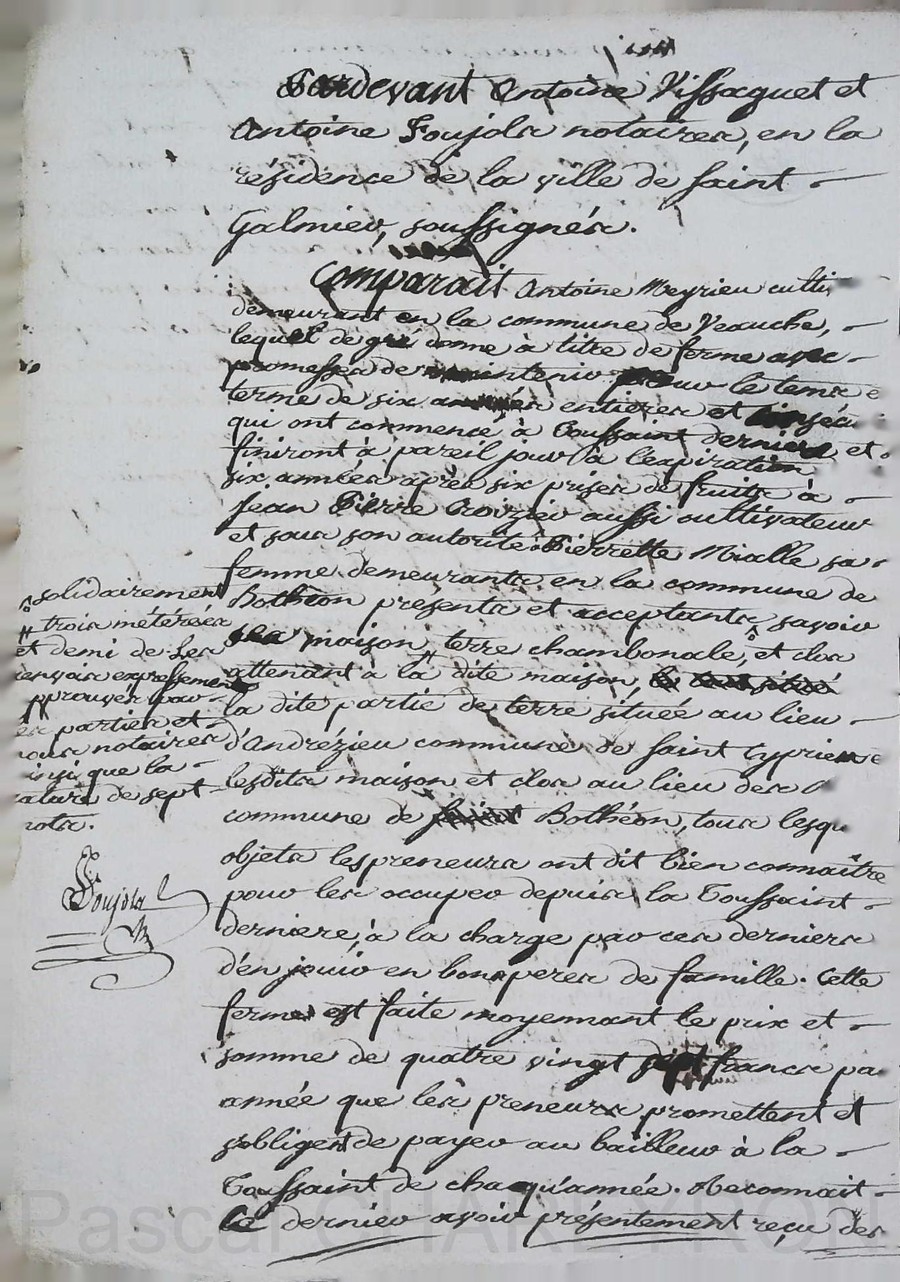 Pardevant Antoine Vissaguet et
Antoine Soujols notaires, en la
résidence de la ville de saint
Galmier, soussignés.
Comparait Antoine Meyrieu culti
demeurant en la commune de Veauche,
lequel de gré donne à titre de ferme avec
promesses de maintenir pour le tems e
terme de six années entieres et conséc
qui ont commencé à Toussaint dernier, et
finiront à pareil jour à l'expiration
six années après six prises de fruits à
Jean Pierre Croizier aussi cultivateur
et sous son autorité à Pierrette Mialle sa
femme demeurants en la commune de
Bothéon présents et acceptants, savoir
maison, terre chambonale, et clos
attenant à la dite maison,
la dite partie de terre située au lieu
d'Andrézieu commune de saint Cyprien e
lesdits maison et clos au lieu des
commune de Bothéon, tous lesqu
objets les preneurs ont dit bien connaître
pour les occuper depuis la Toussaint
derniere, à la charge par ces derniers
d'en jouir en bons peres de famille. Cette
ferme est faite moyennant le prix et
somme de quatre vingt sept francs pa
année que les preneurs promettent et
s'obligent de payer au bailleur à la
Toussaint de chaqu'année. Reconnait
ce dernier avoir présentement reçu des
solidairement
# trois métérées
et demi de
renvois expressement
pprouver par
es parties et
nous notaires
insi que la
rature de sept
mots.
Soujols
Pascal CHAREYRON